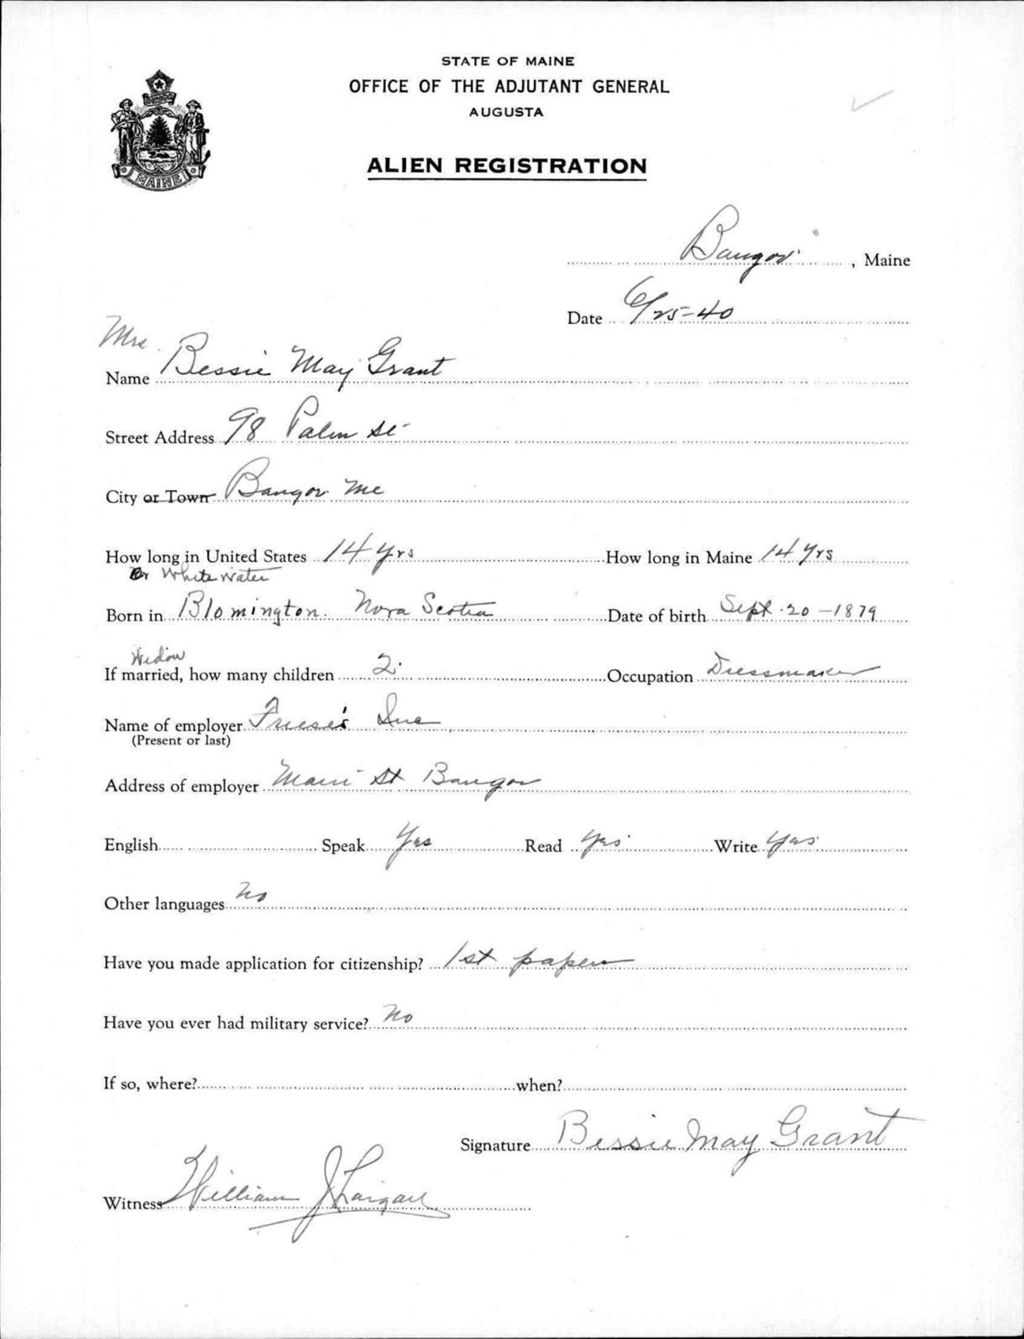 STATE OF MAINE
OFFICE OF THE ADJUTANT GENERAL
AUGUSTA
MAINE
ALIEN REGISTRATION
Bangor, Maine
Date 6/25-40
Mrs
Name Bessie May Grant
Street Address 98 Palm St
City or Town Bangor Me
How long in United States 14 yrs How long in Maine 14 yrs
or White Water
Born in Blomington Nova Scotia Date of birth Sept. 20 - 1879
Widow
If married, how many children 2 Occupation Dressmaker
Name of employer Freese's Inc
(Present or last)
Address of employer Main St Bangor
English Speak Yes Read Yes Write Yes
Other languages No
Have you made application for citizenship? 1st papers
Have you ever had military service? No
If so, where? when?
Signature Bessie May Grant
Witness William J